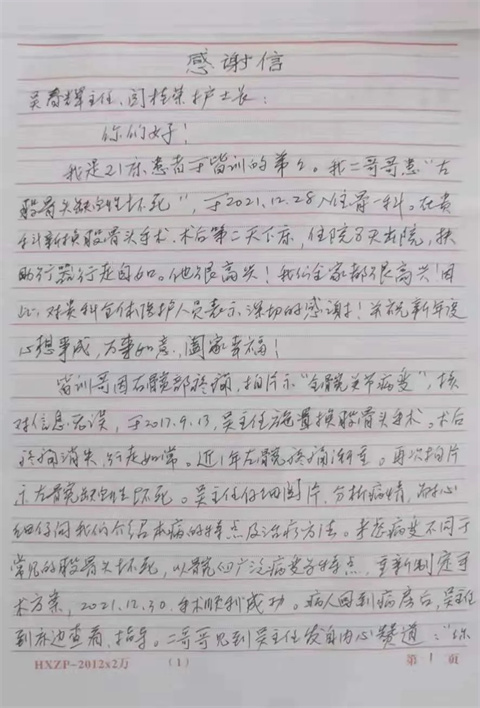 感谢信
吴春辉主任、闫桂荣护士长:
你们好!
我是21床患者于留训的弟弟。我二哥哥患“左
股骨头缺血性坏死”,于2021.12.28入住骨一科。在贵
科新换股骨头手术,术后第二天下床,住院8天出院,扶
助行器行走自如。他很高兴!我们全家都很高兴!因
此,对贵科全体医护人员表示深切的感谢!并祝新年度
心想事成,万事如意,阖家幸福!
留训哥因右髋部疼痛,拍片示“右髋关节病变”,核
对信息无误,于2017.9.13,吴主任施置换股骨头手术。术后
疼痛消失,行走如常。近1年左髋疼痛渐重。再次拍片
示左髋缺血性坏死。吴主任仔细阅片,分析病情,耐心
细仔向我们介绍本病的特点及治疗方法。考虑病变不同于
常见的股骨头坏死,以髋臼广泛病变为特点,重新制定手
术方案,2021.12.30.手术顺利成功。病人回到病房后,吴主任
到床边查看,指导。二哥哥见到吴主任发自内心赞道:“你
HXZP-2012x2万 (1) 第 1 页